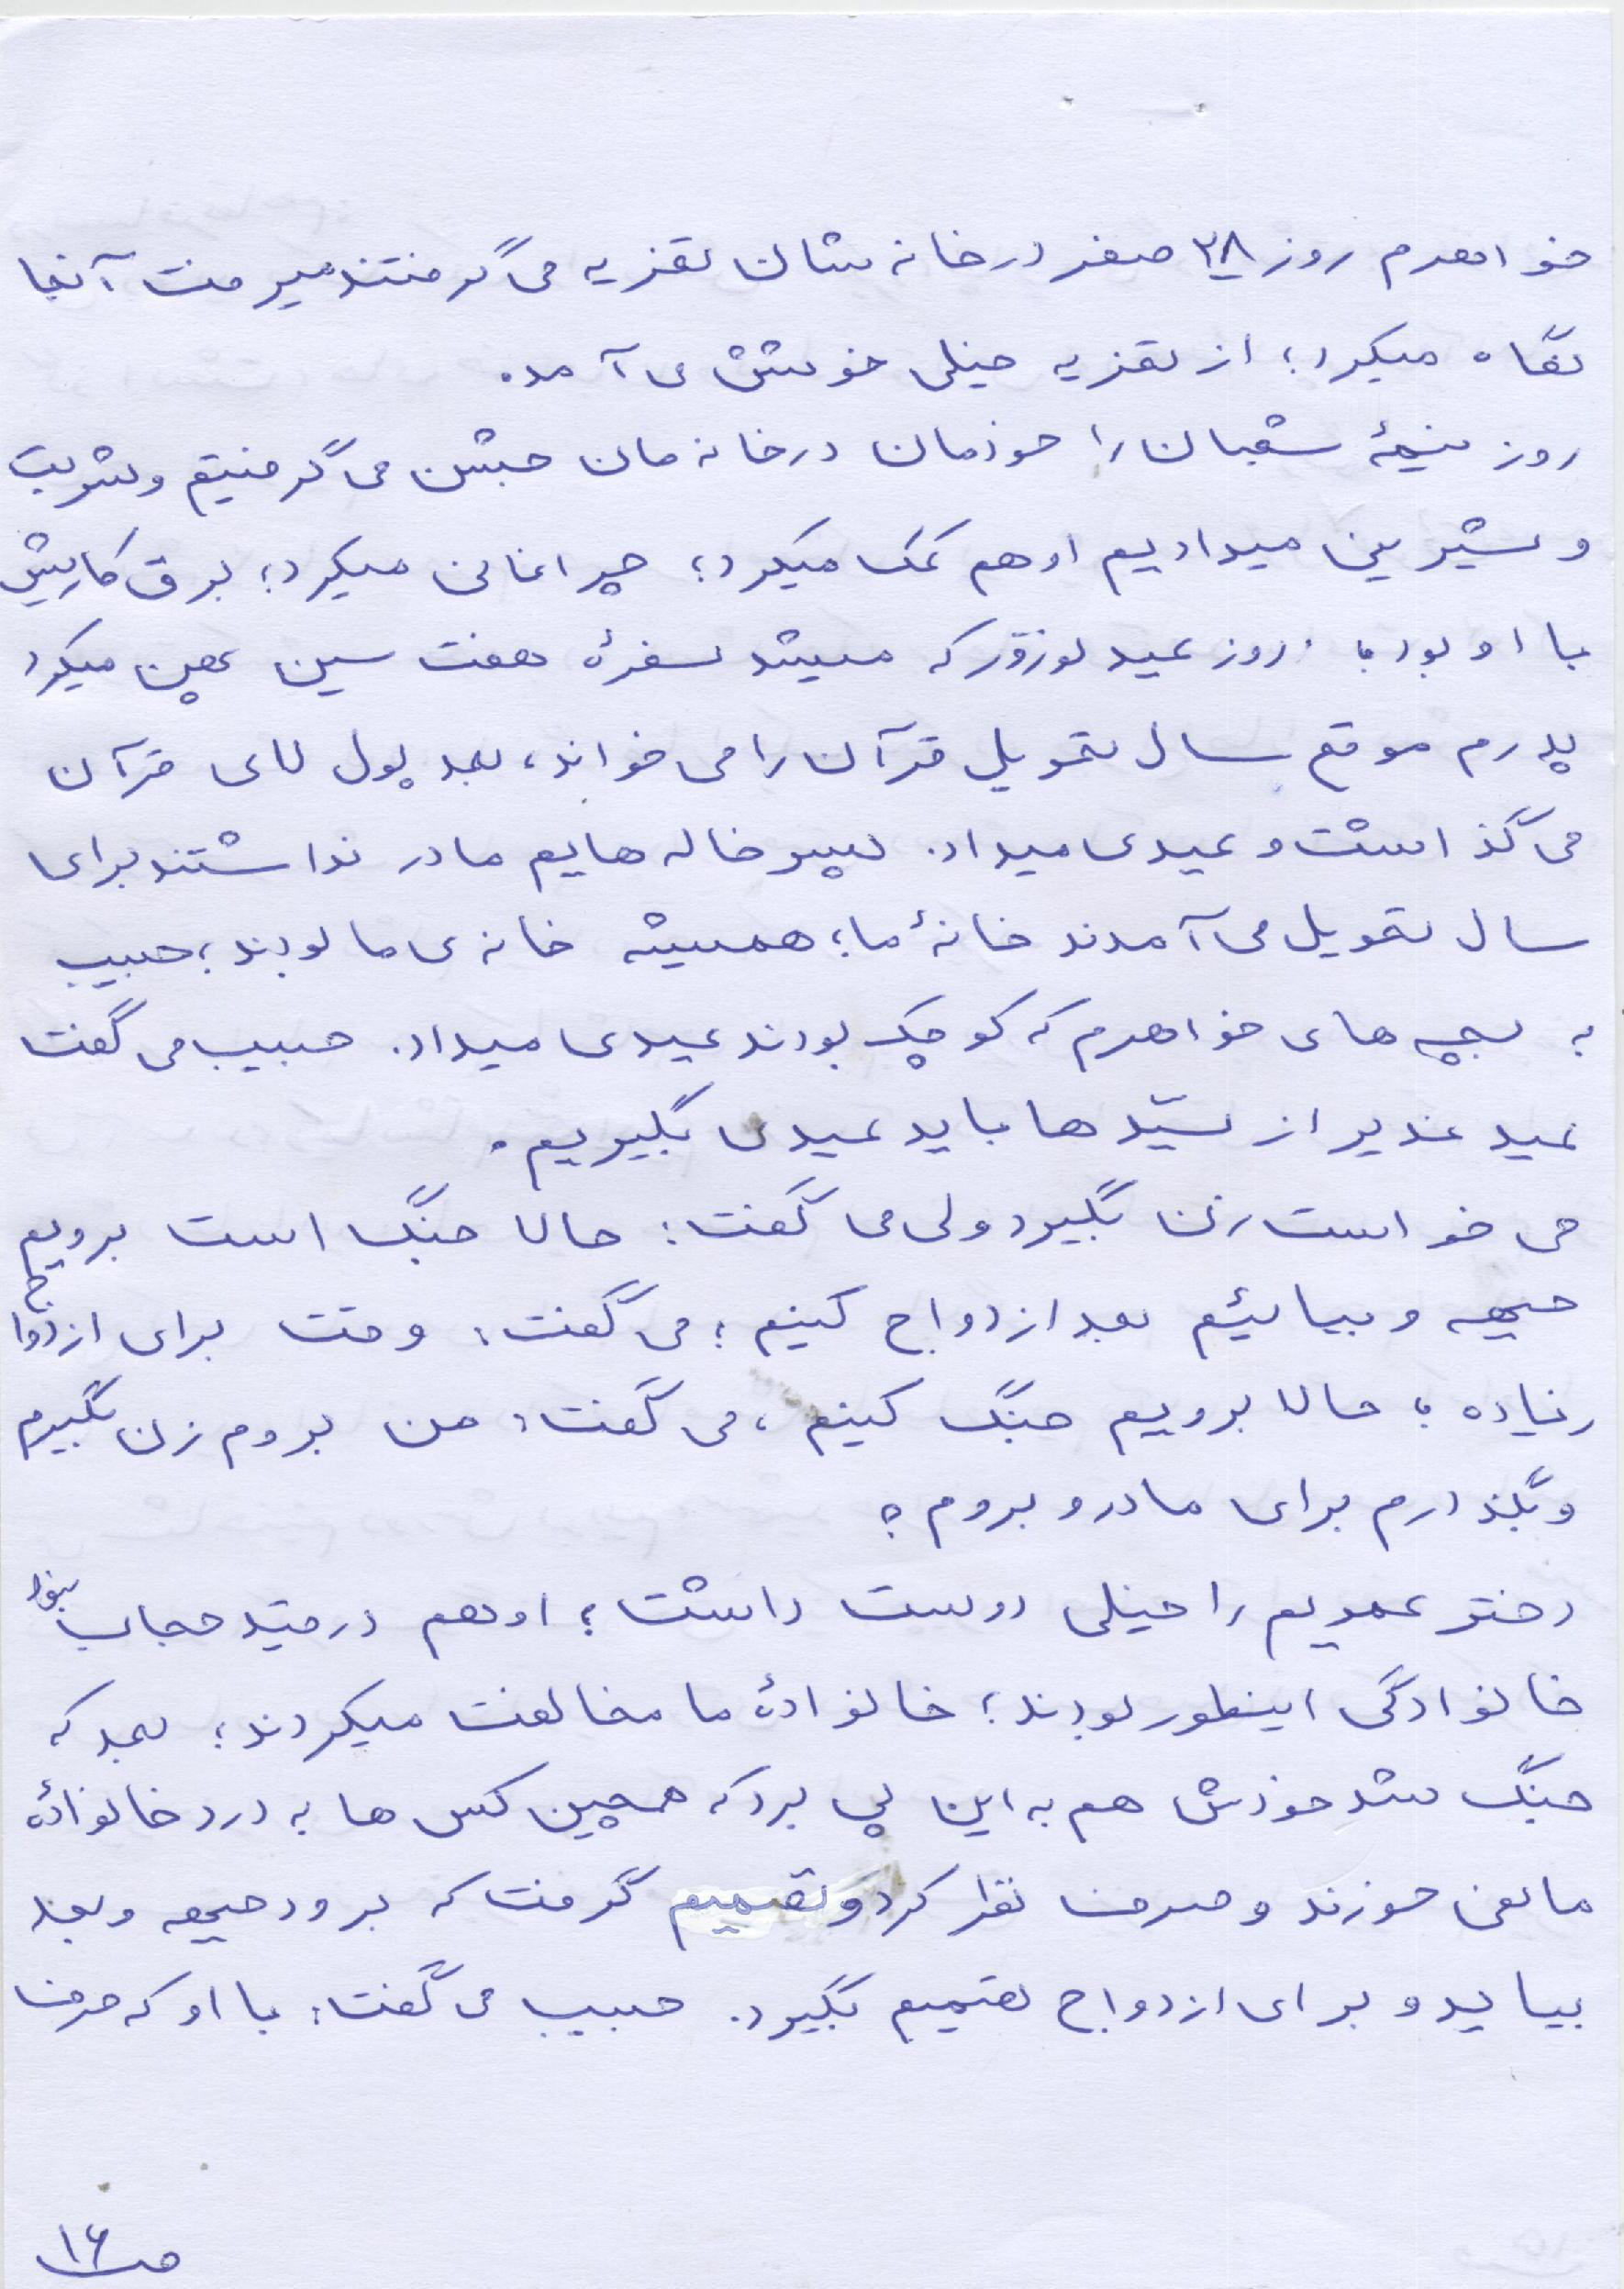 خواهرم روز ۲۸ صفر در خانه شان تعزیه می گرفتند میرفت آنجا
نگاه میکرد؛ از تعزیه خیلی خوشش می آمد.
روز نیمهٔ شعبان را خودمان در خانه مان جشن می گرفتیم و شربت
و شیرینی میدادیم او هم کمک میکرد؛ چراغانی میکرد؛ برق کاریش
با او بود؛ روز عید نوروز که میشد سفرهٔ هفت سین پهن میکرد
پدرم موقع سال تحویل قرآن را می خواند، بعد پول لای قرآن
می گذاشت و عیدی میداد. پسر خاله هایم مادر نداشتند برای
سال تحویل می آمدند خانهٔ ما؛ همیشه خانه ی ما بودند؛ حبیب
به بچه های خواهرم که کوچک بودند عیدی میداد. حبیب می گفت
عید غدیر از سیّد ها باید عیدی بگیریم.
می خواست زن بگیرد ولی می گفت: حالا جنگ است برویم
جبهه و بیائیم بعد ازدواج کنیم؛ می گفت: وقت برای ازدواج
زیاده؛ حالا برویم جنگ کنیم، می گفت: من بروم زن بگیرم
و بگذارم برای مادر و بروم؟
دختر عمویم را خیلی دوست داشت؛ او هم در قید حجاب نبود
خانوادگی اینطور بودند؛ خانوادهٔ ما مخالفت میکردند؛ بعد که
جنگ شد خودش هم به این پی برد که همچین کس ها به درد خانوادهٔ
ما نمی خورند و صرف نظر کرد و تصمیم گرفت که برود جبهه و بعد
بیاید و برای ازدواج تصمیم بگیرد. حبیب می گفت: با او که حرف
ص ۱۶